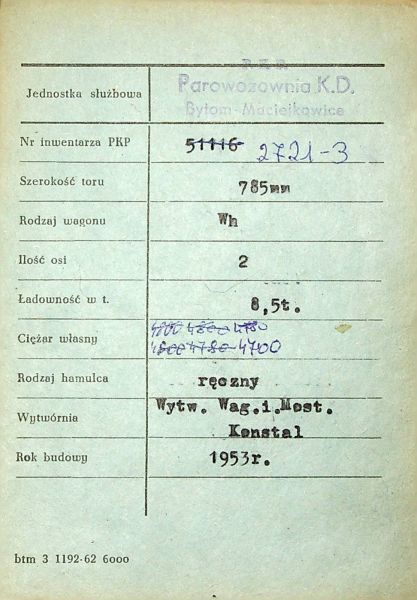 P.K.P.
Jednostka służbowa Parowozownia K.D.
Bytom-Maciejkowice
Nr inwentarza PKP 51116 2721-3
Szerokość toru 785mm
Rodzaj wagonu Wh
Ilość osi 2
Ładowność w t. 8,5t.
Ciężar własny 4800 4780
4800 4780 4700
Rodzaj hamulca ręczny
Wytwórnia Wytw. Wag.i.Most.
Konstal
Rok budowy 1953r.
btm 3 1192-62 6000